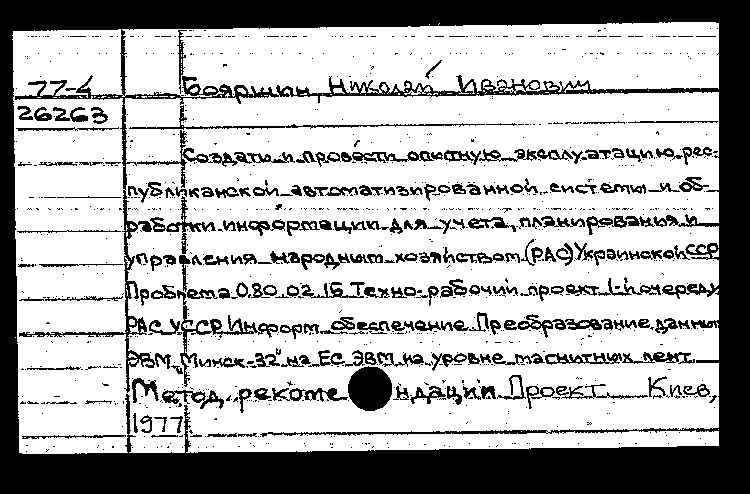 77-4 Бояршин, Николай Иванович
26263
Создать и провести опытную эксплуатацию рес-
публиканской автоматизированной системы и об-
работки информации для учета, планирования и
управления народным хозяйством (РАС) Украинской ССР
Проблема 0.80.02.16 Техно-рабочий проект 1-й очереди
РАС УССР Информ обеспечение Преобразование данных
ЭВМ „Минск-32" на ЕС ЭВМ на уровне магнитных лент.
Метод, рекомендации Проект. Киев,
1977